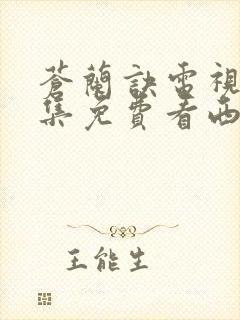 蒼蘭訣電視
集免費看西
王能生